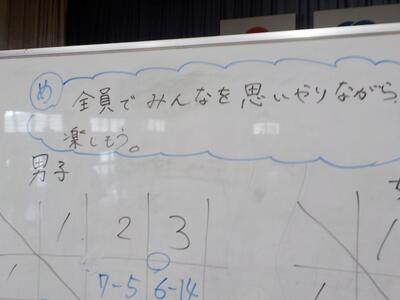 め 全員でみんなを思いやりながら、
楽しもう。
男子
1 2 3 1
7-5 6-14
1 1